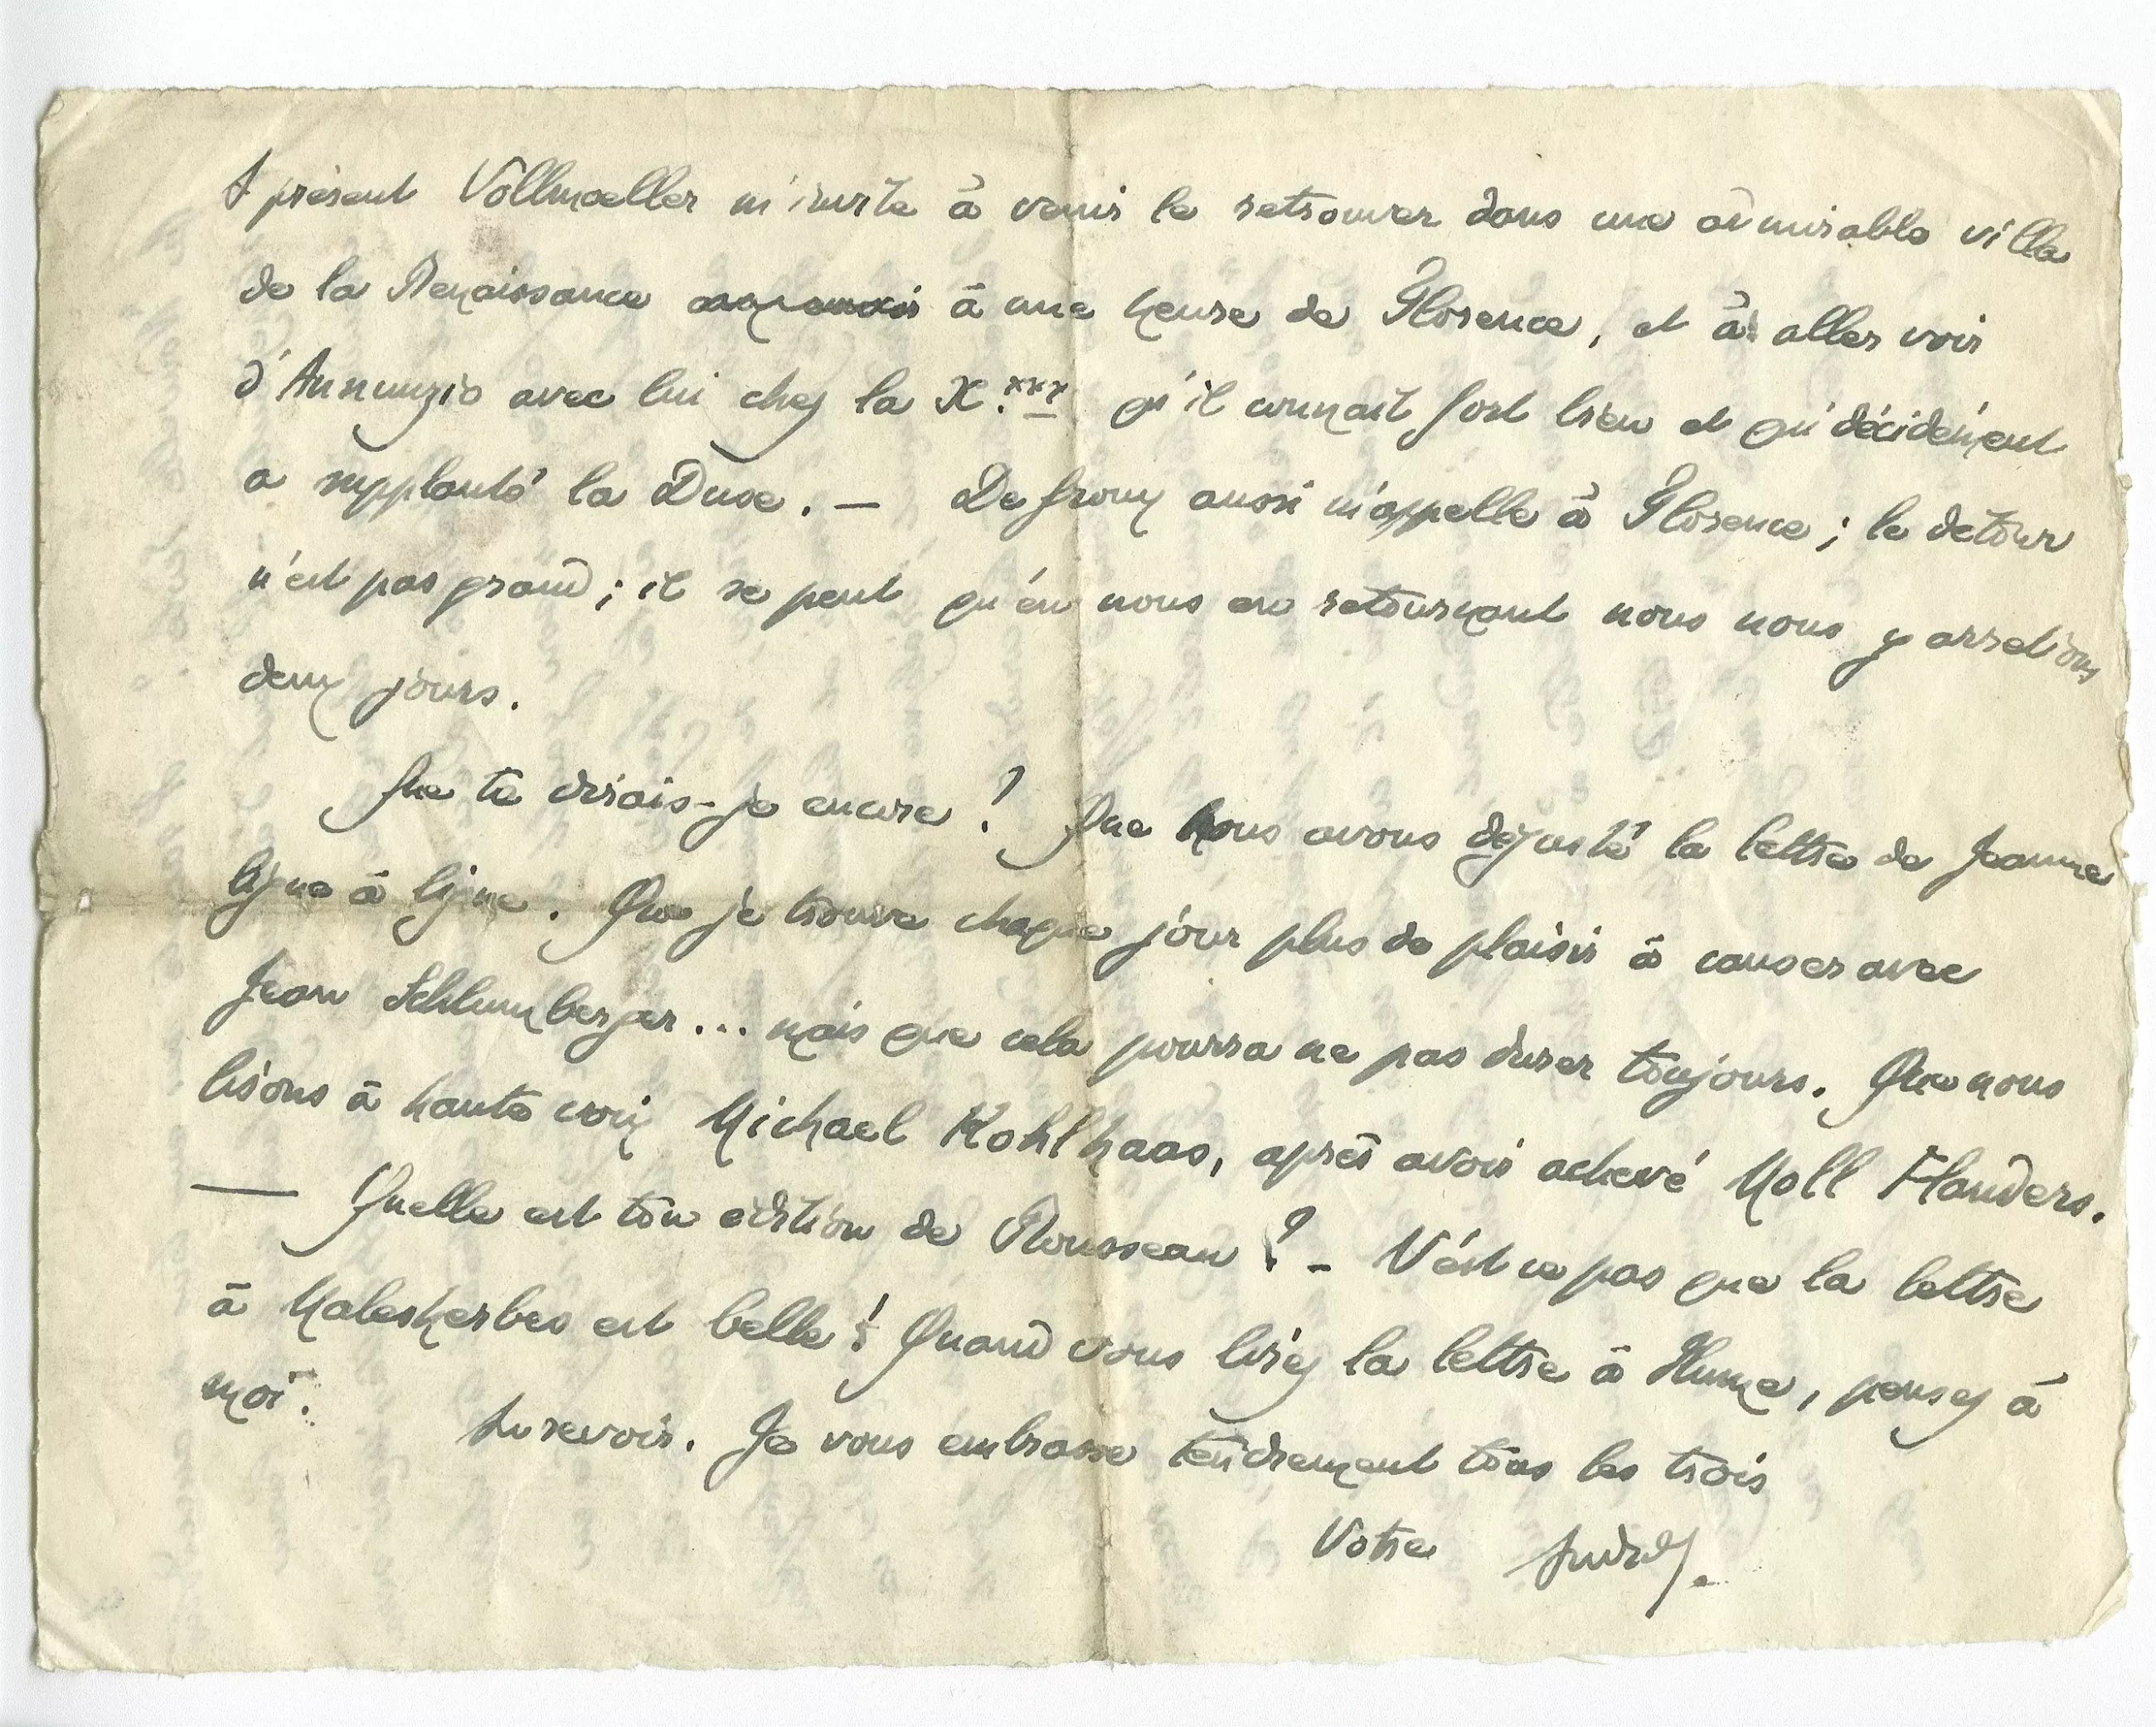 A présent Vollmoeller m'invite à venir le retrouver dans une admirable villa
de la Renaissance à une heure de Florence, et à aller voir
d'Annunzio avec lui chez la X.*** qu'il connait fort bien et qui décidément
a supplanté la Duse. — De Groux aussi m'appelle à Florence ; le détour
n'est pas grand ; il se peut qu'en nous en retournant nous nous y arretions
deux jours.
Que te dirais-je encore ? Que nous avons dégusté la lettre de Jeanne
ligne à ligne. Que je trouve chaque jour plus de plaisir à causer avec
Jean Schlumberger... mais que cela pourra ne pas durer toujours. Que nous
lisons à haute voix Michael Kohlhaas, après avoir achevé Moll Flanders.
— Quelle est ton édition de Rousseau ? - N'est ce pas que la lettre
à Malesherbes est belle ! Quand vous lirez la lettre à Hume, pensez à
moi.
Au revoir. Je vous embrasse tendrement tous les trois
Votre André.